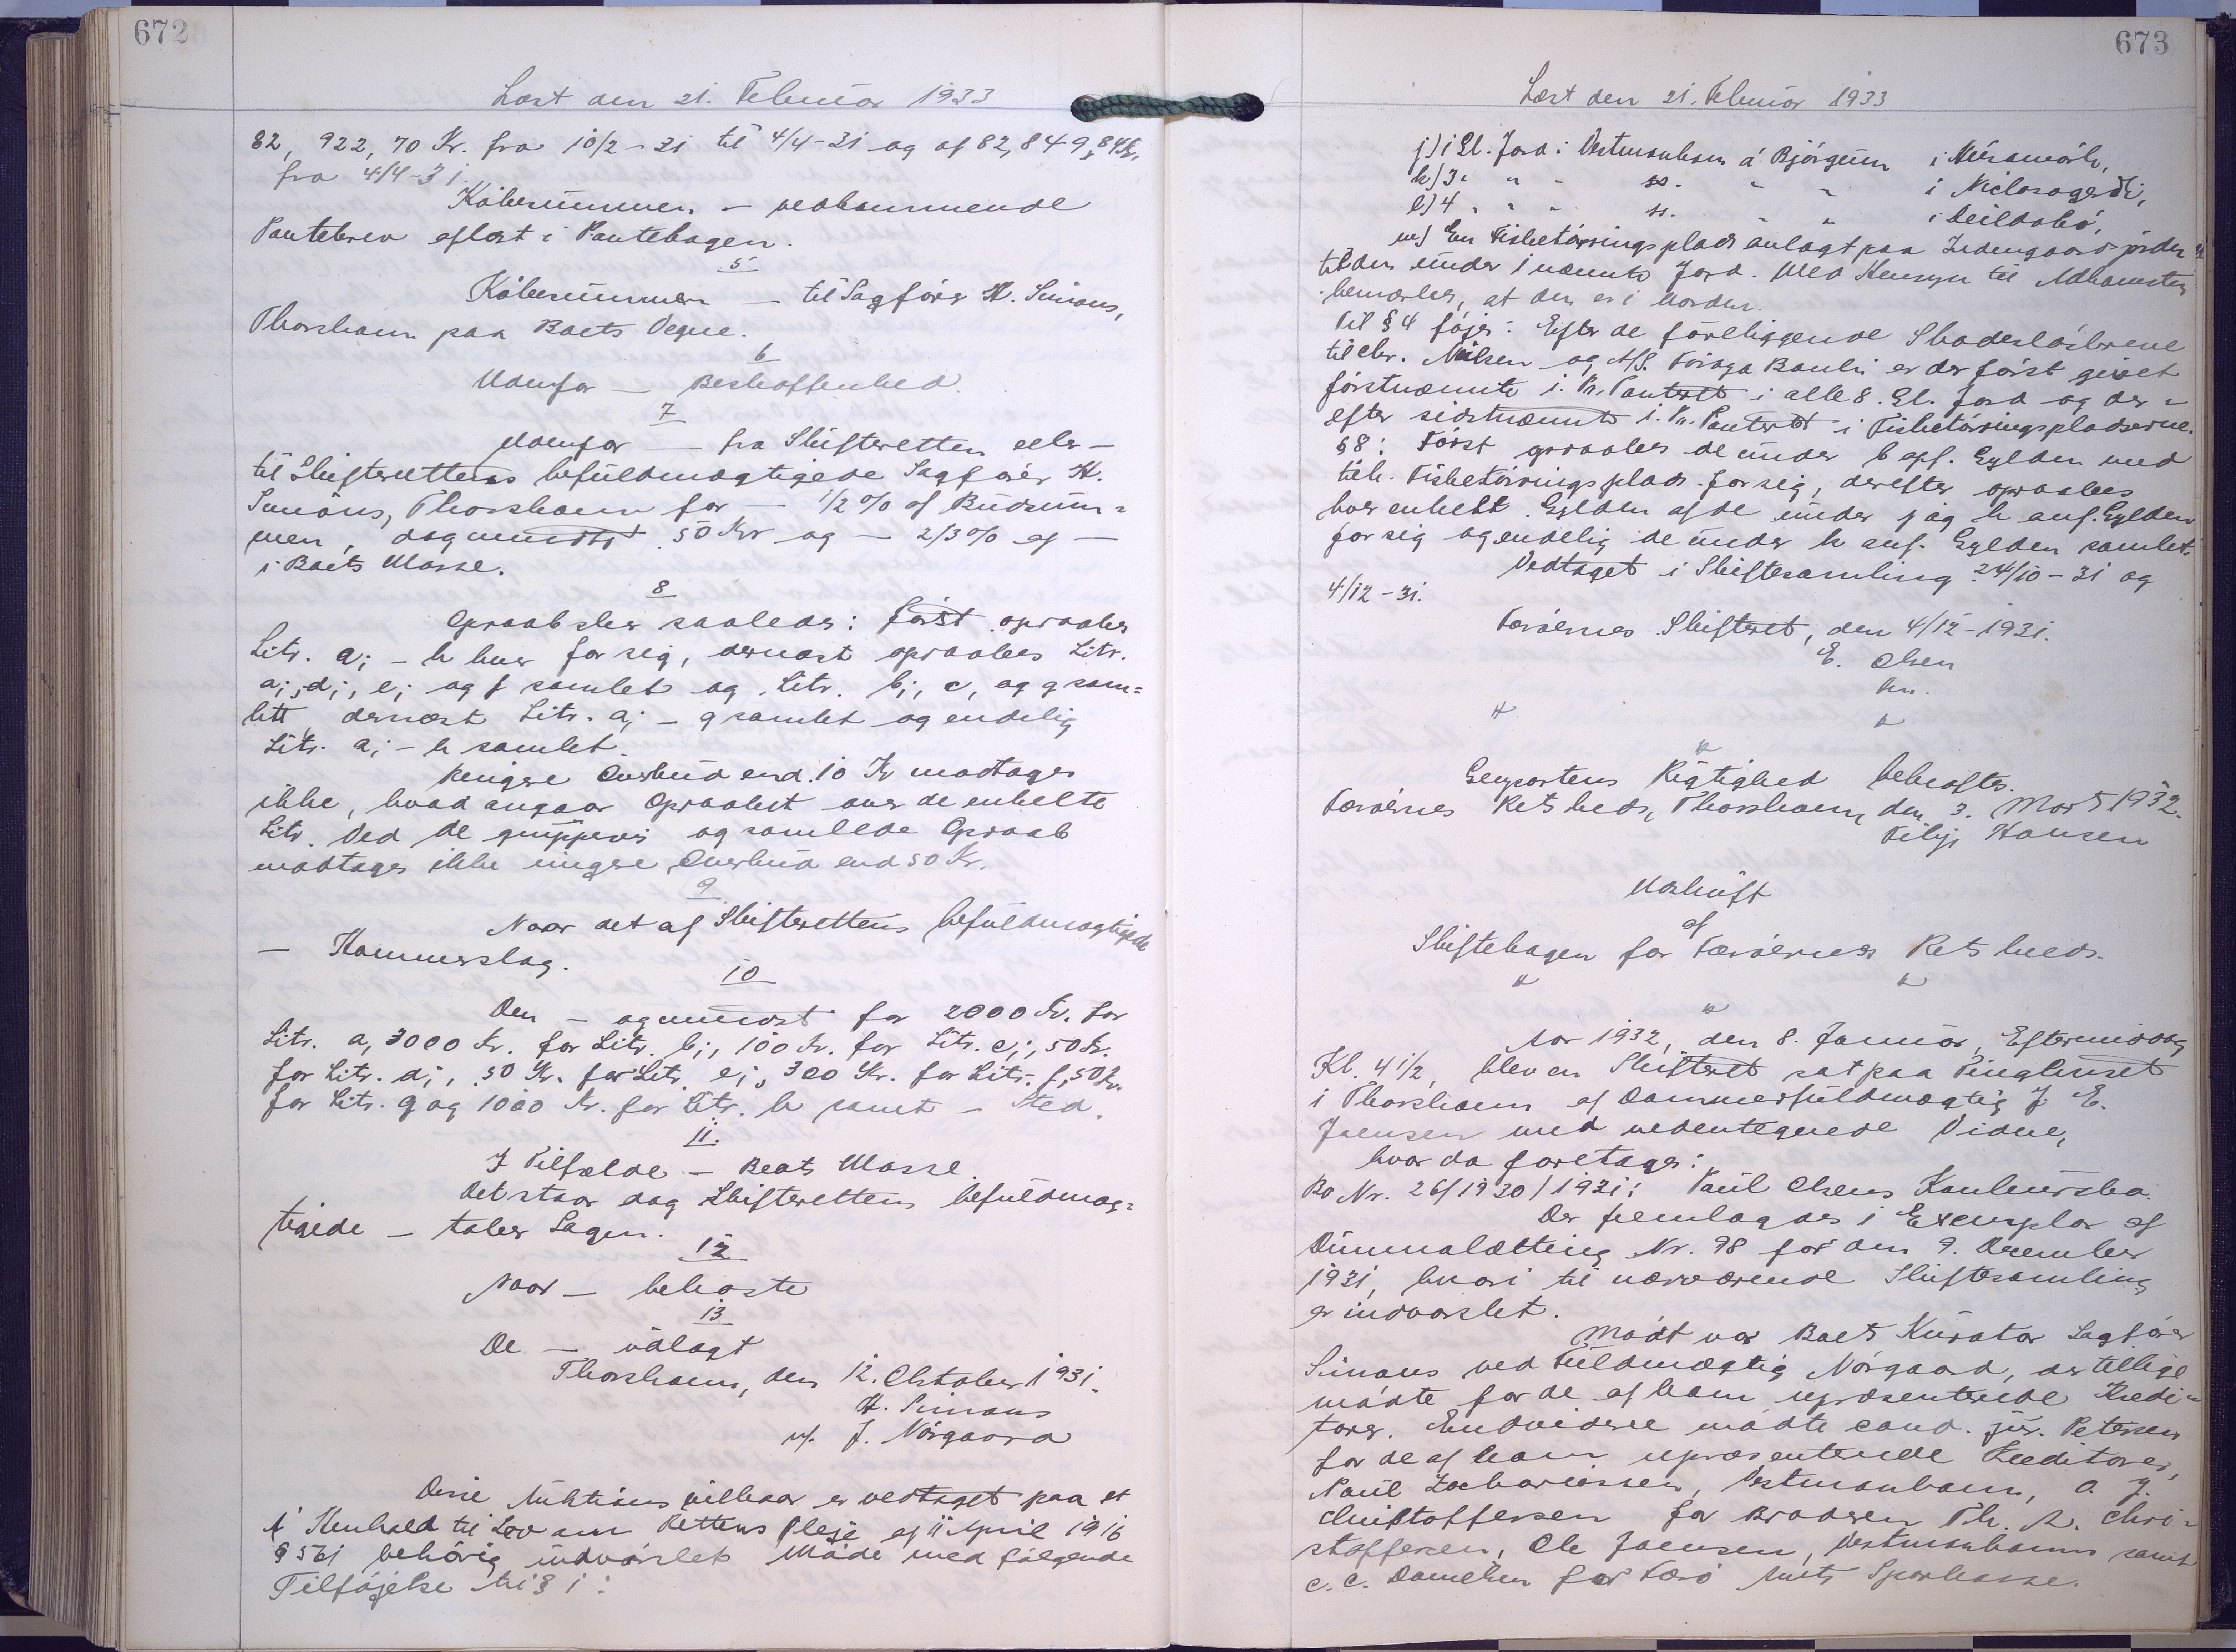 672
Læst den 21. Februar 1933
82,922,70 Kr. fra 10/2-31 til 4/4-31 og af 82,849,84 Kr.
fra 4/4-31.
Købesummen. – vedkommende
Pantebrev aflæst i Pantebogen.
5
Købesummen – til Sagfører H. Simons,
Thorshavn paa Boets Vegne.
6
Udenfor – Beskaffenhed.
7
Udenfor – fra Skifteretten eller –
til Skifterettens befuldmægtigede Sagfører H.
Simons, Thorshavn for – 1/2 % af Budsum-
men, dog mindst 50 Kr og – 2/3 % af –
i Boets Masse.
8
Opraab sker saaledes: først opraabes
Litr. a; – h hver for sig, dernæst opraabes Litr.
a;, d;, e; og f samlet og Litr. b;, c, og g sam-
let, dernæst Litr. a; – g samlet og endelig
Litr. a; – h samlet.
Ringere Overbud end 10 Kr modtages
ikke, hvad angaar Opraabet over de enkelte
Litr. Ved de gruppevis og samlede Opraab
modtages ikke ringere Overbud end 50 Kr.
9
Naar det af Skifterettens befuldmægtigede
– Hammerslag.
10
Den – og mindst for 2000 Kr. for
Litr. a, 3000 Kr. for Litr. b;, 100 Kr. for Litr. c;, 50 Kr.
for Litr. d;, 50 Kr. for Litr. e;, 300 Kr. for Litr. f, 50 Kr.
for Litr. g og 1000 Kr. for Litr. h samt – Sted.
11.
I Tilfælde – Boets Masse.
Det staar dog Skifterettens befuldmæg-
tigede – taber Sagen.
12
Naar – bekoste
13
De – udlagt
Thorshavn, den 12. Oktober 1931.
H. Simons
v/. J. Nørgaard
Disse Auktionsvilkaar er vedtaget paa et
i Henhold til Lov om Rettens Pleje af 11 April 1916
§ 561 behørig indvarslet Møde med følgende
Tilføjelse til § 1:
673
Læst den 21. Februar 1933
j) 1 Gl. Jord i Vestmanhavn á Bjørgum i
k) 3 " " - ss. - " i Niclasagerði,
l) 4 " " - ss. - " i
m) En Fisketørringsplads anlagt paa
til den under i nævnte Jord. Med Hensyn til Adkomsten
bemærkes, at den er i Orden.
Til § 4 føjes: Efter de foreliggende Skadesløsbreve
til Chr. Nielsen og A/S. Føroya Banki er der først givet
førstnævnte i. Pr. Panteret i alle 8 Gl. Jord og der-
efter sidstnævnte i. Pr. Panteret i Fisketørringspladserne.
§ 8: Først opraabes de under b opf. Gylden med
tilh. Fisketørringsplads for sig, derefter opraabes
hver enkelt Gylden af de under j og h anf. Gylden
for sig og endelig de under h anf. Gylden samlet.
Vedtaget i Skiftesamling 24/10-31 og
4/12-31.
Færøernes Skifteret, den 4/12-1931.
E. Olsen
kn.
Genpartens Rigtighed bekræftes.
Færøernes Retskreds, Thorshavn, den 3. Marts 1932.
Hansen
Udskrift
af
Skiftebogen for Færøernes Retskreds.
Aar 1932, den 8. Januar, Eftermiddag
Kl. 4 1/2, blev en Skifteret sat paa Tinghuset
i Thorshavn af Dommerfuldmægtig J. E.
Joensen med undertegnede Vidne,
hvor da foretoges:
Bo Nr. 26/1930/1931: Poul Olsens Konkursbo.
Der fremlagdes 1 Exemplar af
Dimmalætting Nr. 98 for den 9. December
1931, hvori til nærværende Skiftesamling
er indvarslet.
Mødt var Boets Kurator Sagfører
Simons ved Fuldmægtig Nørgaard, der tillige
mødte for de af ham repræsenterede Kredi-
torer. Endvidere mødte cand. jur. Petersen
for de af ham repræsenterede Kreditorer,
Poul Zachariassen, Vestmanhavn, O. J.
Christoffersen for Broderen Th. A. Chri-
stoffersen, Ole Joensen, Vestmanhavn samt
C. C. Danielsen for Færø Amts Sparkasse.